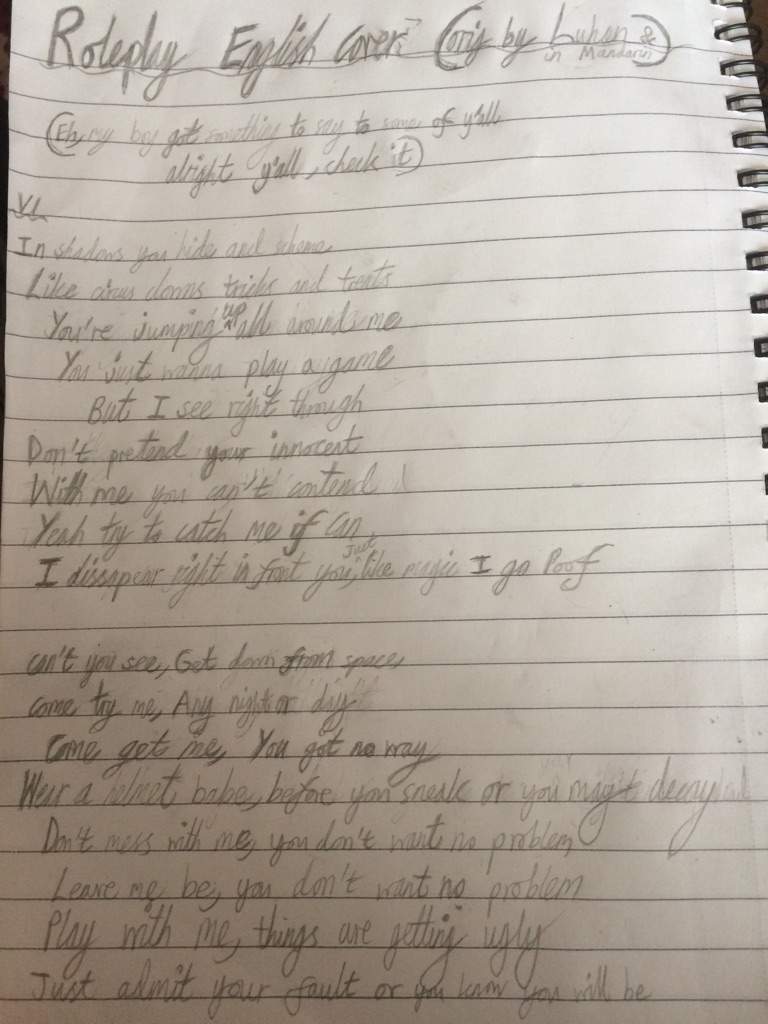 Roleplay English Cover: (orig by Luhan &
in Mandarin)
(Eh, my boy got something to say to some of y'all
alright y'all, check it)
V1
In shadows you hide and scheme
Like circus clowns tricks and treats
You're jumping up all around me
You just wanna play a game
But I see right through
Don't pretend your innocent
With me you can't contend
Yeah try to catch me if can
I dissapear right in front you, Just like magic I go Poof
can't you see, Get down from space
come try me, Any night or day
Come get me, You got no way
Wear a helmet babe, before you sneak or you might decay
Don't mess with me, you don't want no problem
Leave me be, you don't want no problem
Play with me, things are getting ugly
Just admit your fault or you know you will be